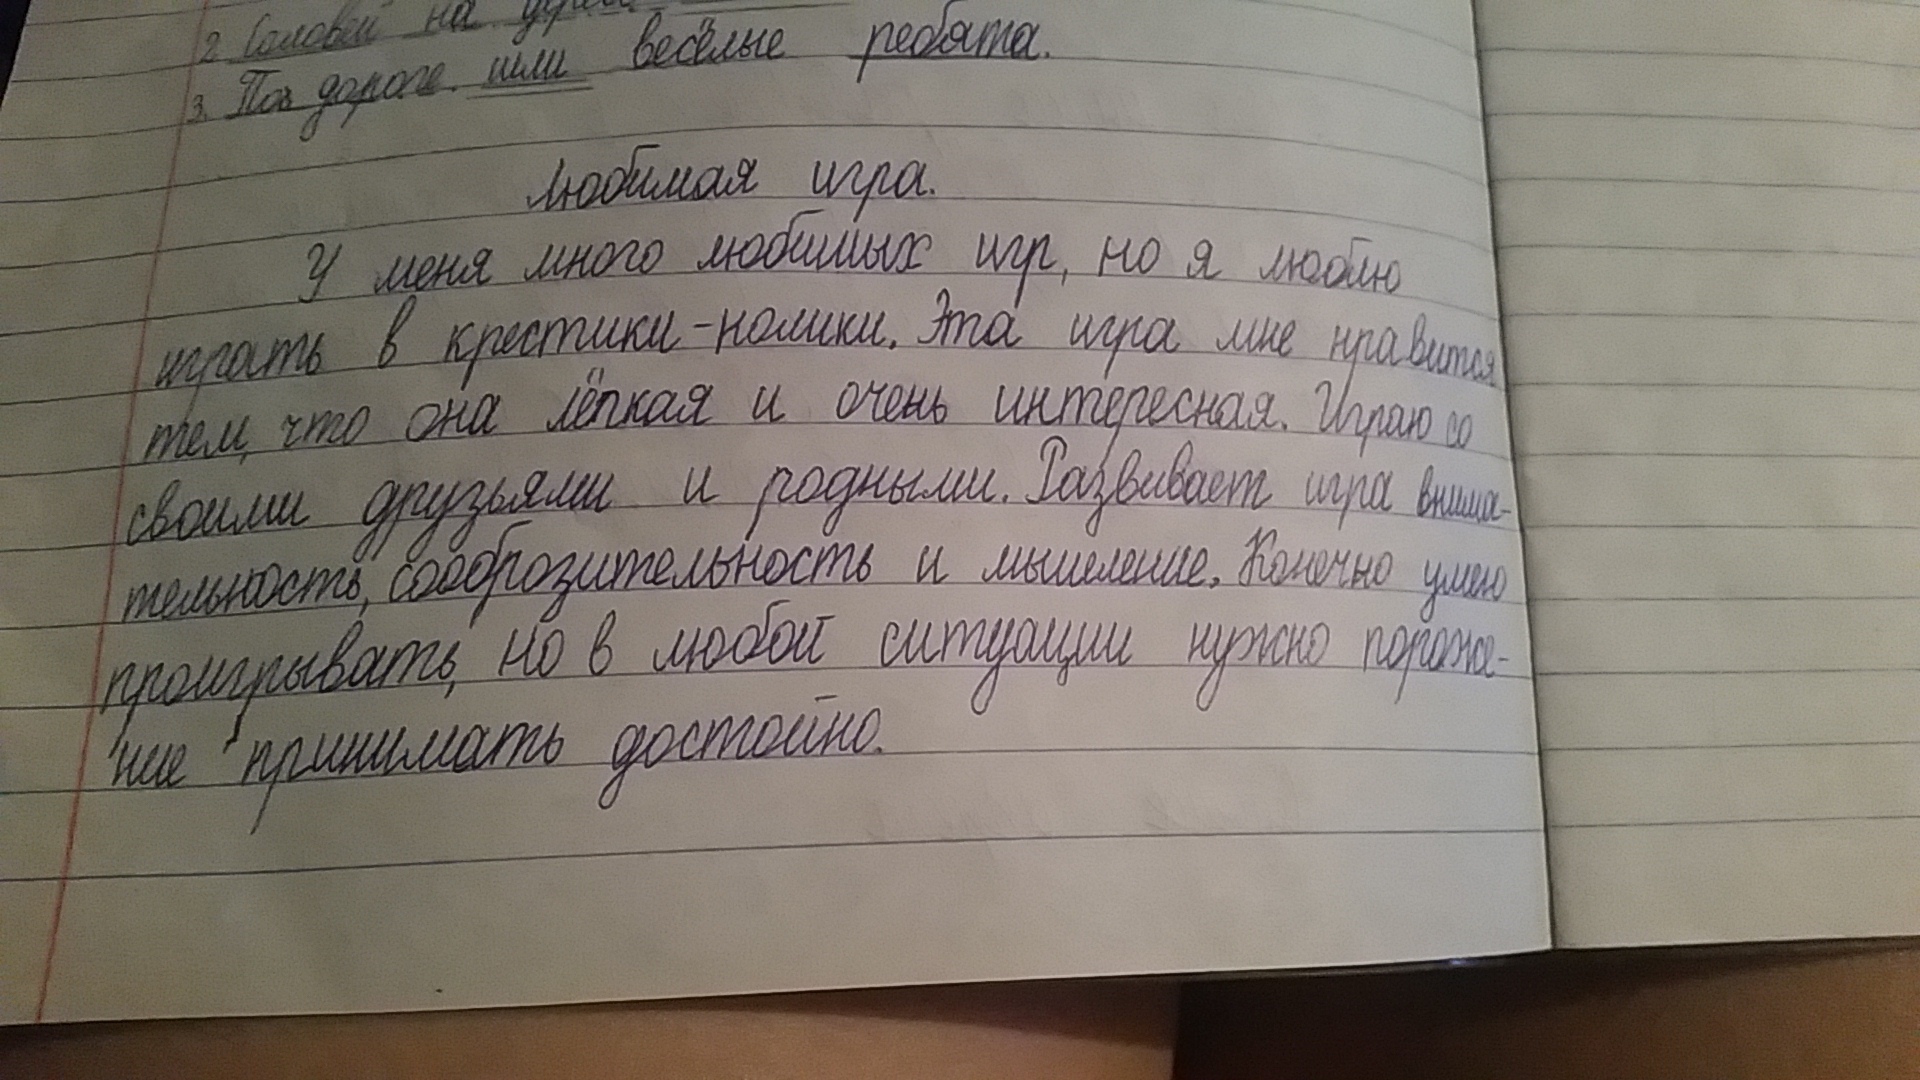 2. Соловей на дереве
3. По дороге шли весёлые ребята.
Любимая игра.
У меня много любимых игр, но я люблю
играть в крестики-нолики. Эта игра мне нравится
тем, что она лёгкая и очень интересная. Играю со
своими друзьями и родными. Развивает игра внима-
тельность, сооброзительность и мышеление. Конечно умею
проигрывать, но в любой ситуации нужно пораже-
ние принимать достойно.